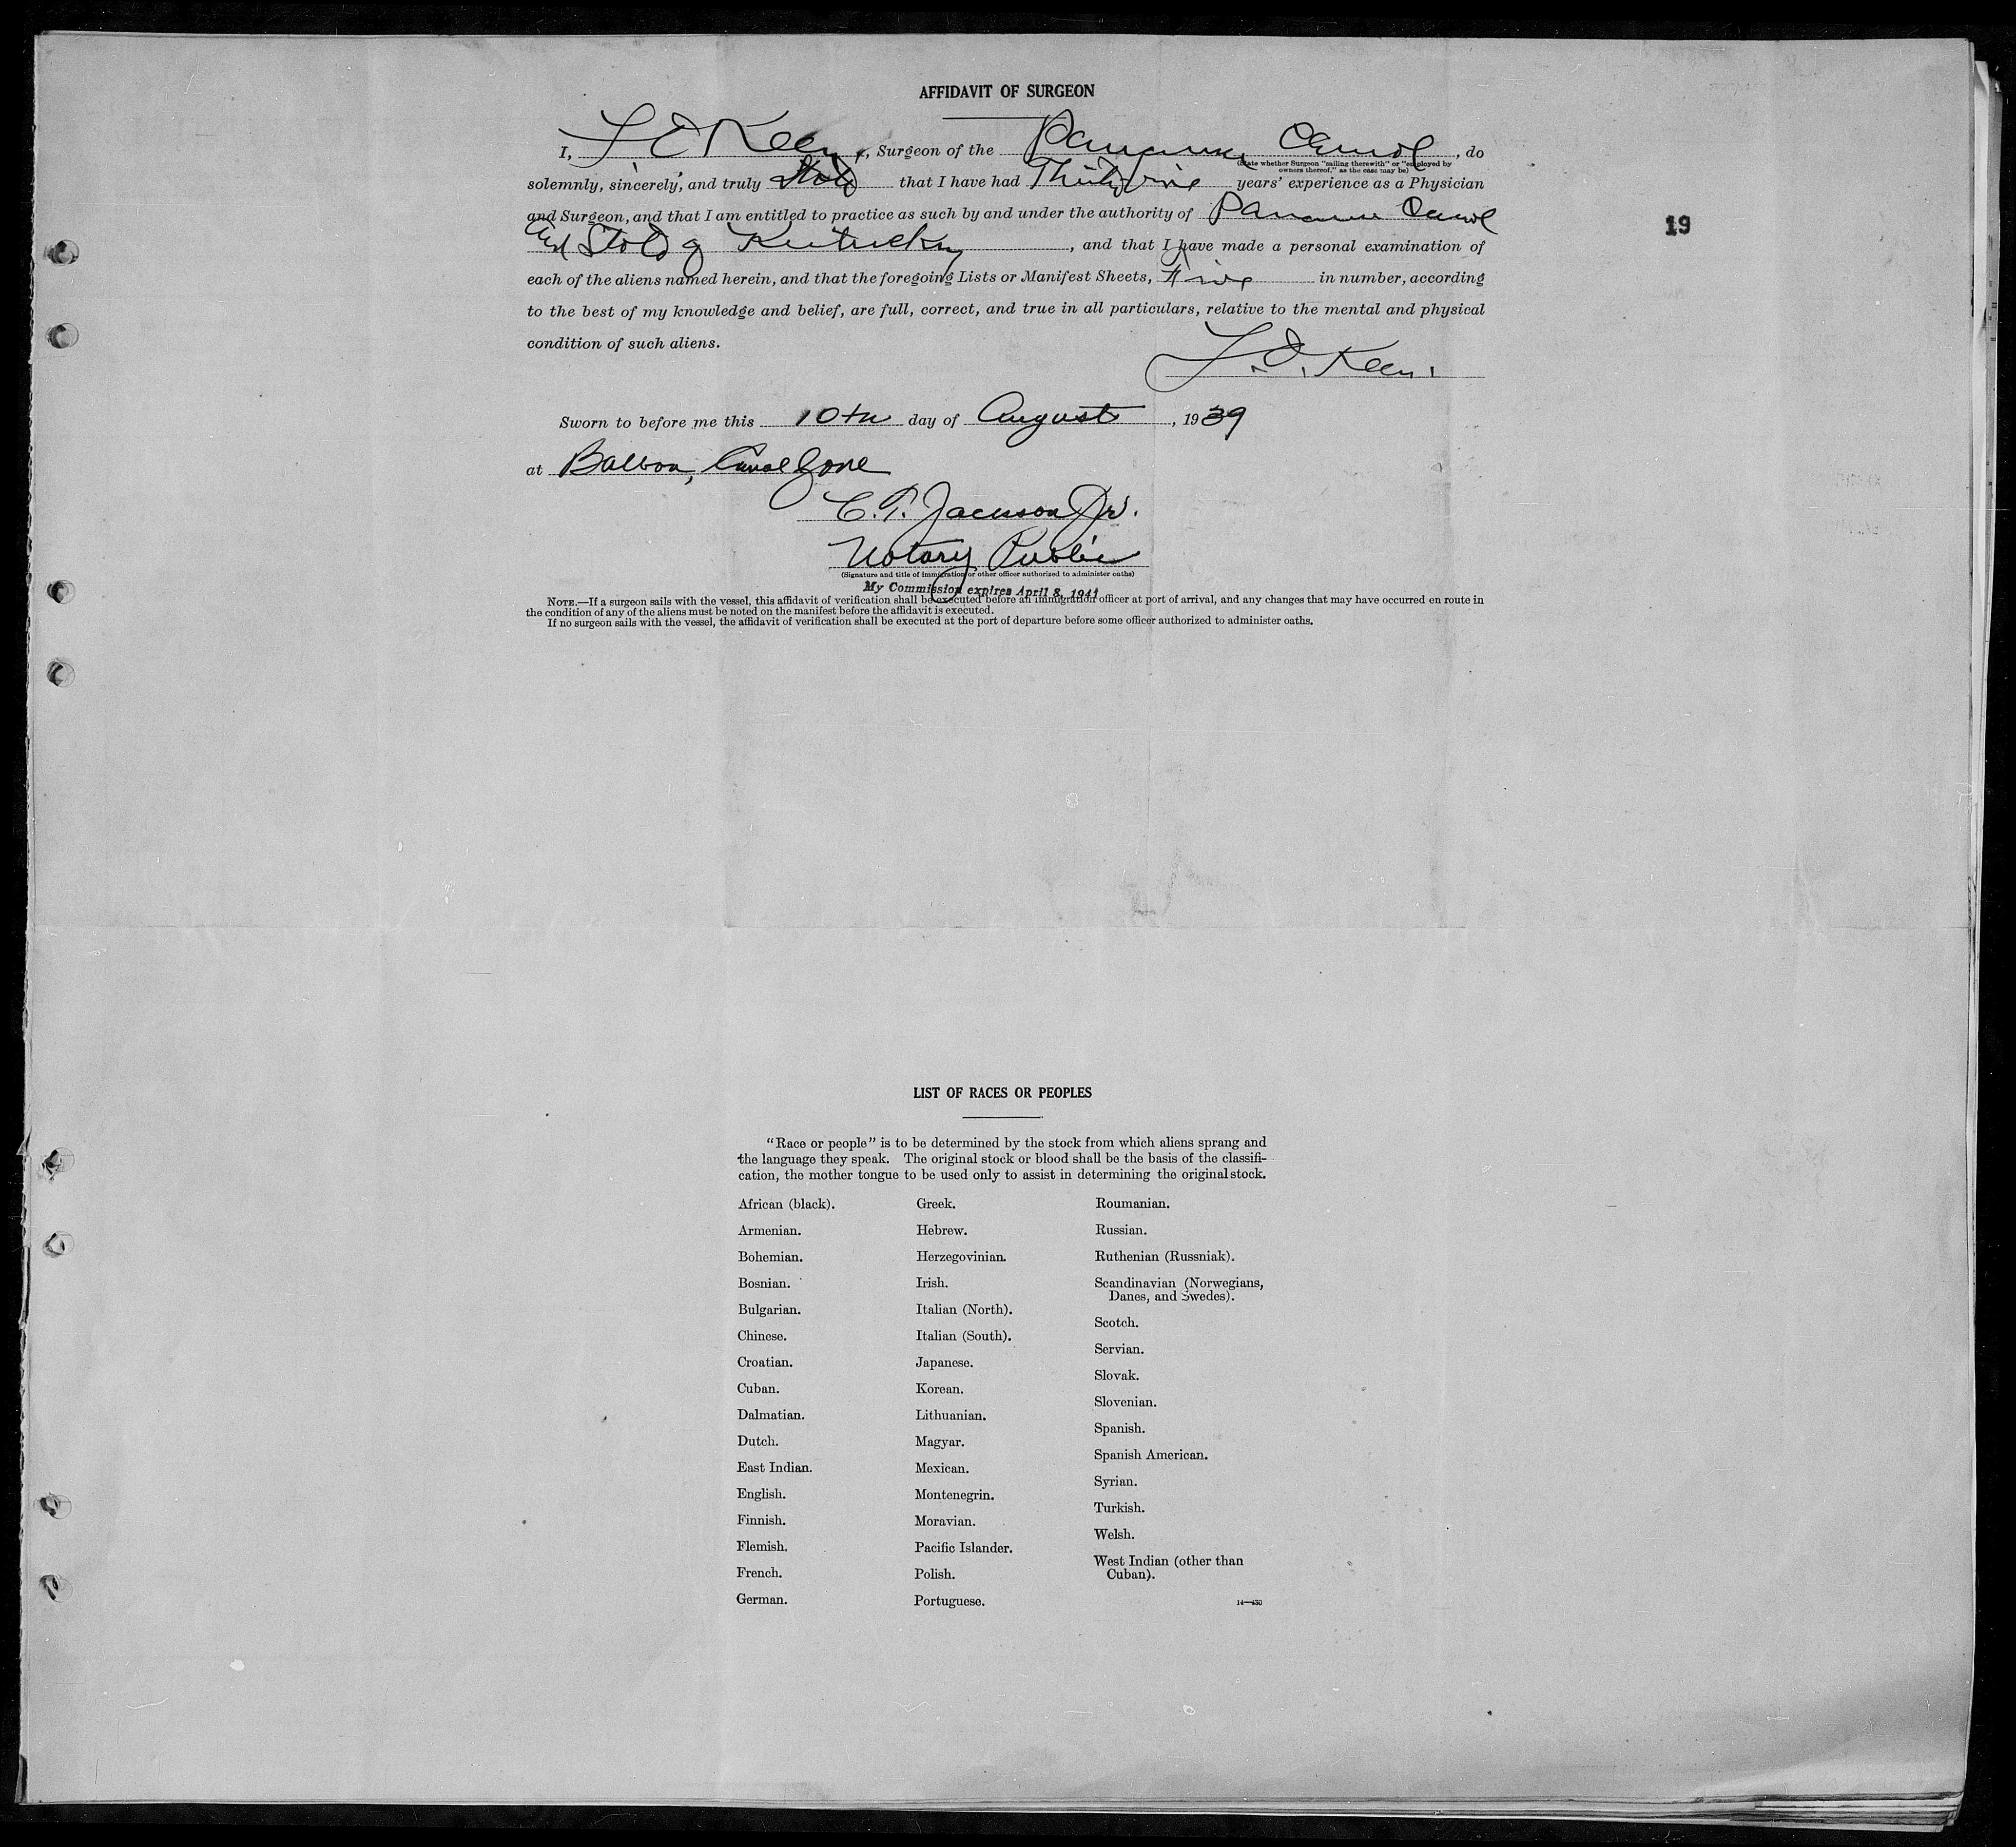 AFFIDAVIT OF SURGEON
I, L. O. Keen, Surgeon of the Panama Canal, do
(State whether Surgeon "sailing therewith" or "employed by
owners thereof," as the case may be)
solemnly, sincerely, and truly State that I have had Thirty five years' experience as a Physician
and Surgeon, and that I am entitled to practice as such by and under the authority of Panama Canal
and State of Kentucky, and that I have made a personal examination of
each of the aliens named herein, and that the foregoing Lists or Manifest Sheets, Five in number, according
to the best of my knowledge and belief, are full, correct, and true in all particulars, relative to the mental and physical
condition of such aliens.
L. O. Keen.
Sworn to before me this 10th day of August, 1939
at Balboa, Canal Zone
C. T. Jackson Jr.
Notary Public
(Signature and title of immigration or other officer authorized to administer oaths)
My Commission expires April 8, 1941
NOTE.—If a surgeon sails with the vessel, this affidavit of verification shall be executed before an immigration officer at port of arrival, and any changes that may have occurred en route in
the condition of any of the aliens must be noted on the manifest before the affidavit is executed.
If no surgeon sails with the vessel, the affidavit of verification shall be executed at the port of departure before some officer authorized to administer oaths.
19
LIST OF RACES OR PEOPLES
"Race or people" is to be determined by the stock from which aliens sprang and
the language they speak. The original stock or blood shall be the basis of the classifi-
cation, the mother tongue to be used only to assist in determining the original stock.
African (black).
Armenian.
Bohemian.
Bosnian.
Bulgarian.
Chinese.
Croatian.
Cuban.
Dalmatian.
Dutch.
East Indian.
English.
Finnish.
Flemish.
French.
German.
Greek.
Hebrew.
Herzegovinian.
Irish.
Italian (North).
Italian (South).
Japanese.
Korean.
Lithuanian.
Magyar.
Mexican.
Montenegrin.
Moravian.
Pacific Islander.
Polish.
Portuguese.
Roumanian.
Russian.
Ruthenian (Russniak).
Scandinavian (Norwegians,
Danes, and Swedes).
Scotch.
Servian.
Slovak.
Slovenian.
Spanish.
Spanish American.
Syrian.
Turkish.
Welsh.
West Indian (other than
Cuban).
14—430